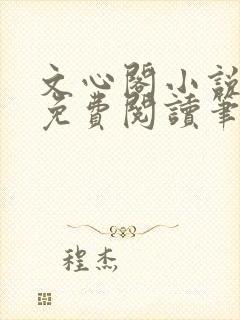 文心閣小說
免費閱讀筆
程杰